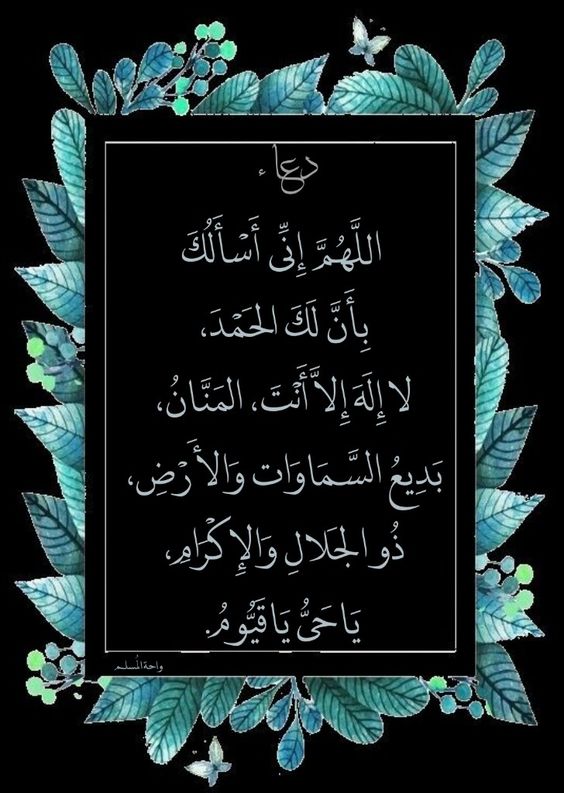 دعاء
اللَّهُمَّ إِنِّي أَسْأَلُكَ
بِأَنَّ لَكَ الحَمْدَ،
لا إِلَهَ إِلاَّ أَنْتَ، المَنَّانُ،
بَدِيعُ السَّمَاوَات وَالأَرْضِ،
ذُو الجَلالِ وَالإِكْرَامِ،
يَا حَيُّ يَا قَيُّومُ.
واحة المُسلم